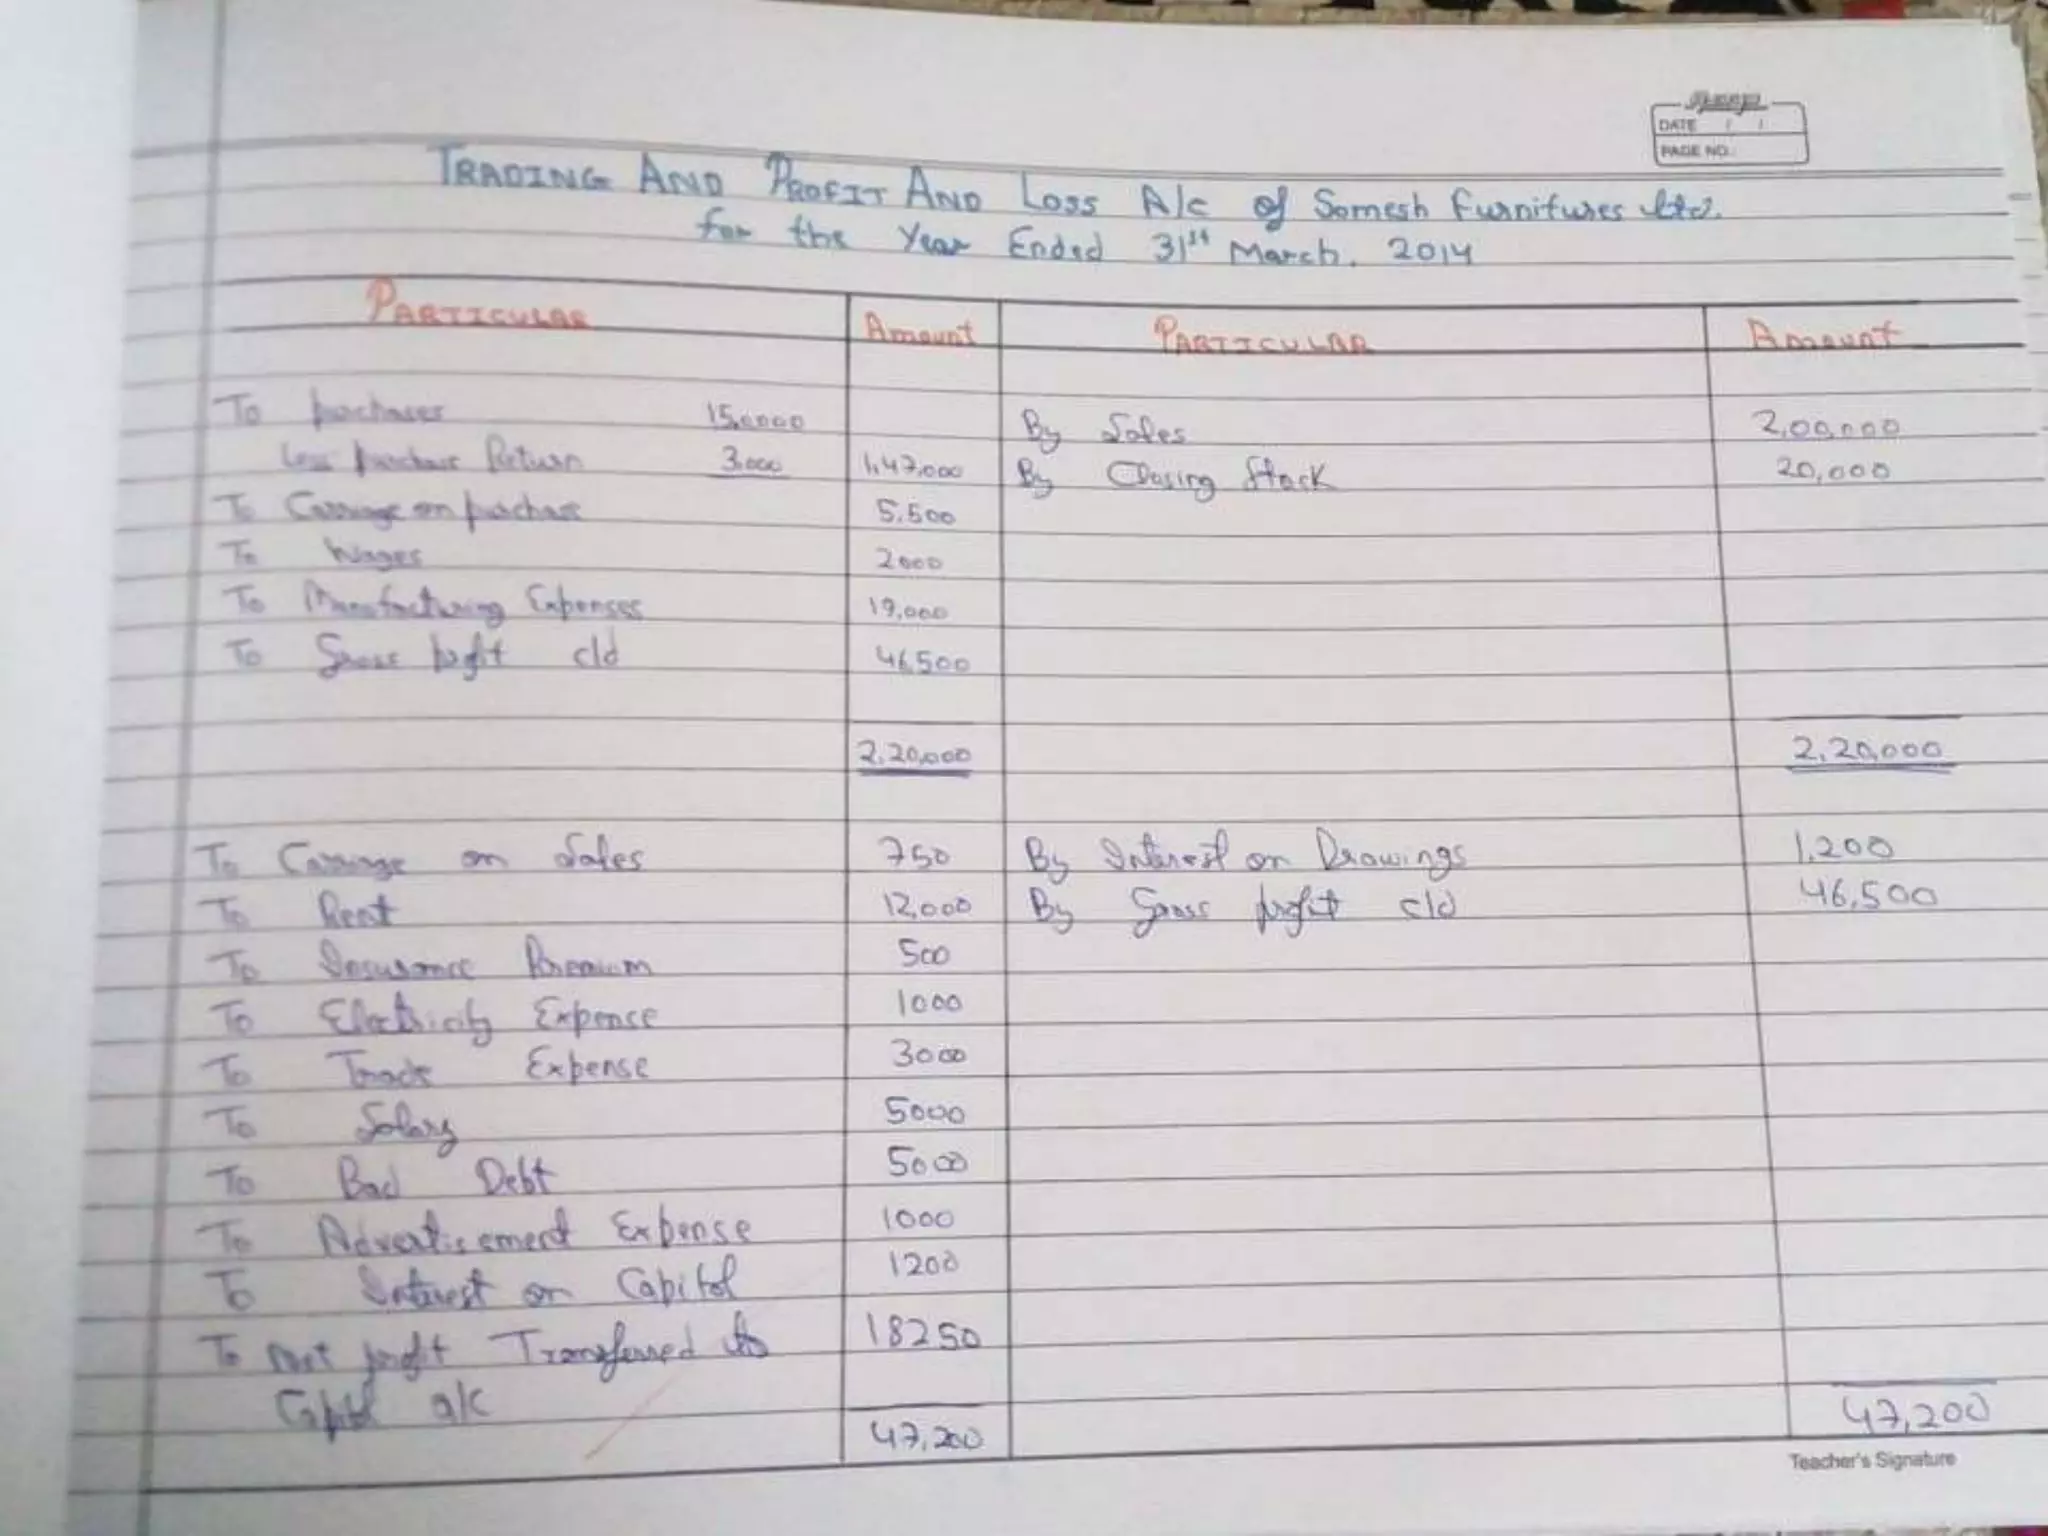 DATE / /
PAGE NO.
TRADING AND PROFIT AND LOSS A/c of Somesh Furnitures Ltd.
for the Year Ended 31st March, 2014
PARTICULAR Amount PARTICULAR Amount
To purchases 15,0000 By Sales 2,00,000
Less purchase Return 3,000 1,47,000 By Closing Stock 20,000
To Carriage on purchase 5,500
To Wages 2000
To Manufacturing Expenses 19,000
To Gross profit c/d 46,500
2,20,000 2,20,000
To Carriage on Sales 750 By Interest on Drawings 1,200
To Rent 12,000 By Gross profit c/d 46,500
To Insurance Premium 500
To Electricity Expense 1000
To Trade Expense 3000
To Salary 5000
To Bad Debt 5000
To Advertisement Expense 1000
To Interest on Capital 1200
To Net profit Transferred to 18250
Capital a/c
47,200 47,200
Teacher's Signature